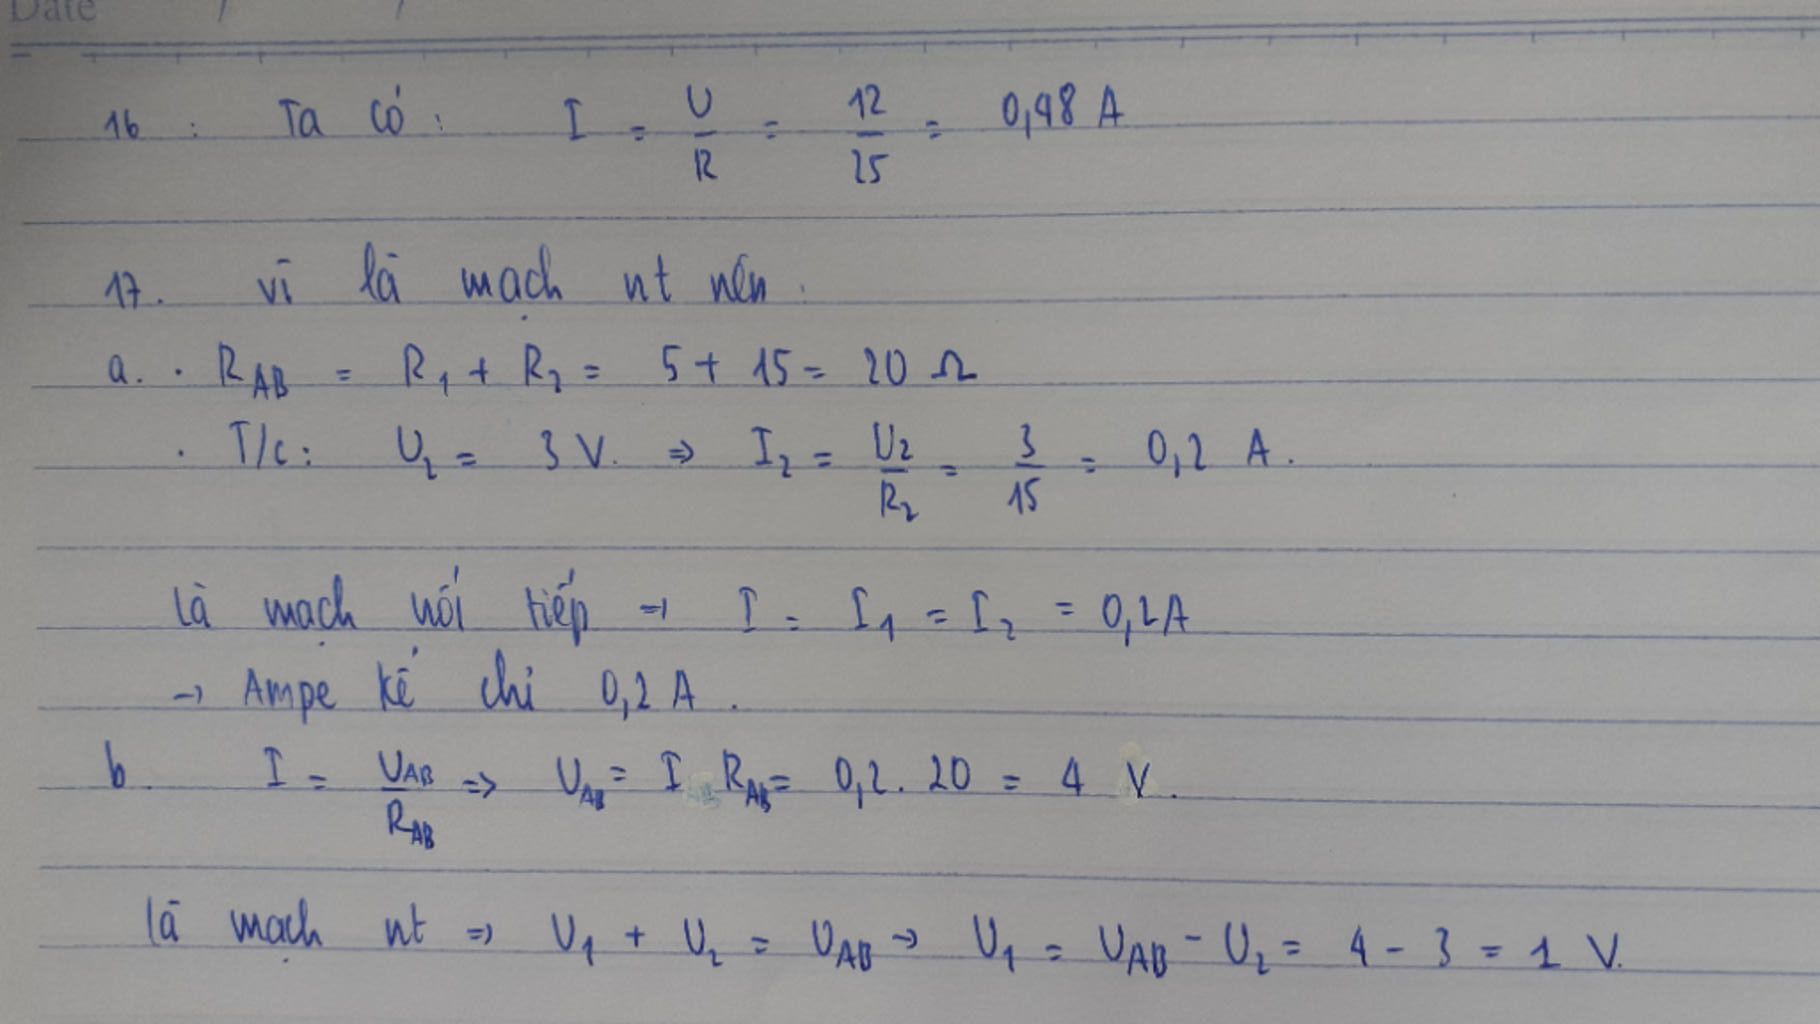 Date / /
16 : Ta có : I = U/R = 12/25 = 0,48 A
17. vì là mạch nt nên :
a. . R_AB = R_1 + R_2 = 5 + 15 = 20 Ω
. T/c : U_2 = 3 V. ⇒ I_2 = U_2/R_2 = 3/15 = 0,2 A.
là mạch nối tiếp → I = I_1 = I_2 = 0,2A
→ Ampe kế chỉ 0,2 A .
b. I = U_AB/R_AB => U_AB = I R_AB = 0,2 . 20 = 4 V .
là mạch nt => U_1 + U_2 = U_AB → U_1 = U_AB - U_2 = 4 - 3 = 1 V.